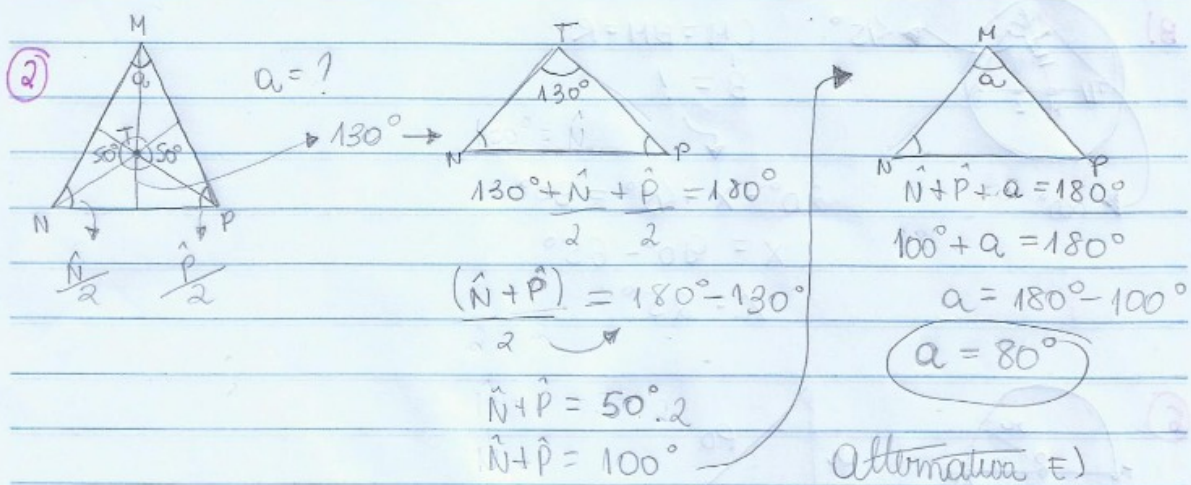 2
M
a
a = ?
T
50° 50°
130°
N P
N̂/2 P̂/2
T
130°
N P
130° + N̂/2 + P̂/2 = 180°
(N̂ + P̂)/2 = 180° - 130°
N̂ + P̂ = 50° . 2
N̂ + P̂ = 100°
M
a
N P
N̂ + P̂ + a = 180°
100° + a = 180°
a = 180° - 100°
a = 80°
Alternativa E)